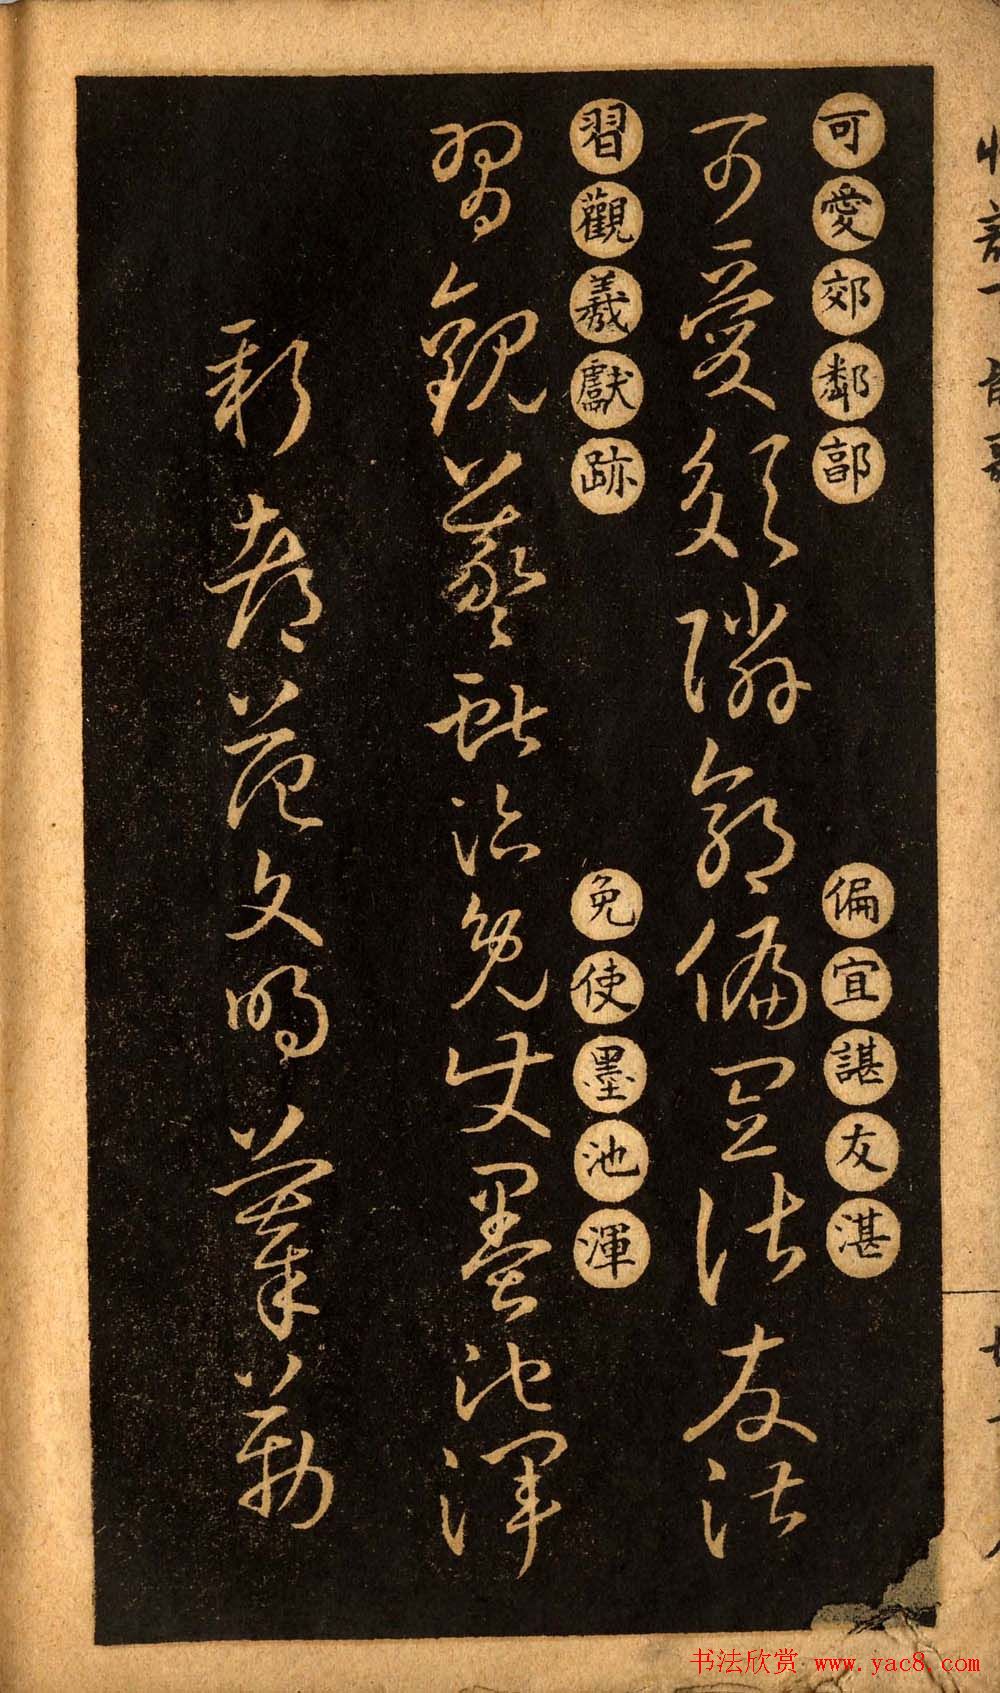 可愛郊鄰部 偏宜諶友湛
可愛郊鄰部偏宜諶友湛
習觀羲獻跡 免使墨池渾
習觀羲獻跡免使墨池渾
新都范文明摹勒
书法欣赏 www.yac8.com